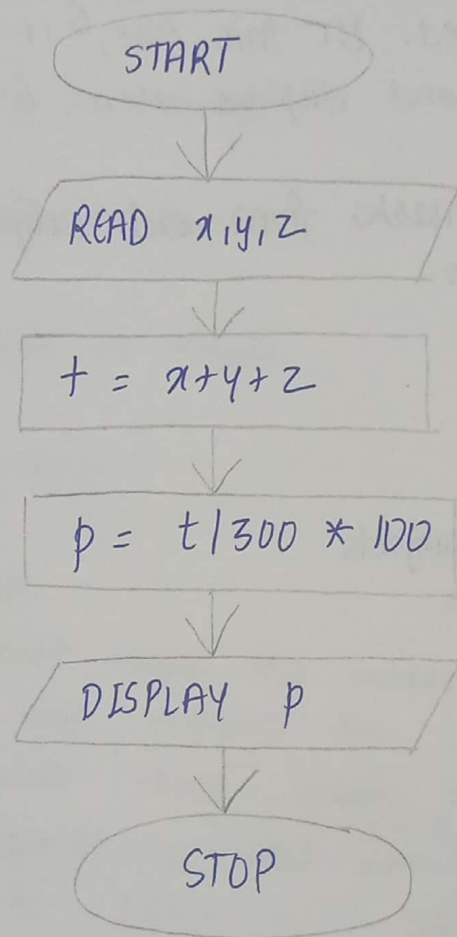 START
READ x,y,z
t = x+y+z
p = t/300 * 100
DISPLAY p
STOP